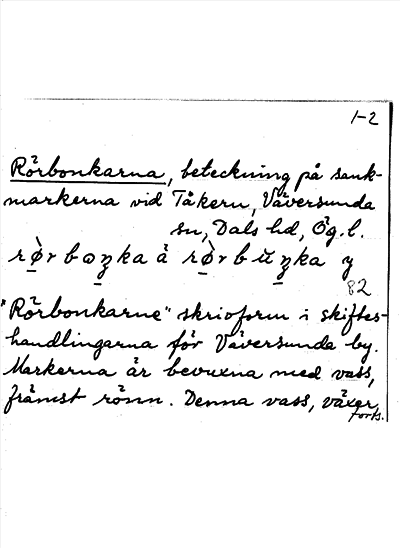 1-2
Rörbonkarna, beteckning på sank-
markerna vid Tåkern, Väversunda
sn, Dals hd, Ög. l.
rø̀rboŋka å rø̀rbŭŋka
82
"Rörbonkarne" skrivform i skiftes-
handlingarna för Väversunda by.
Markerna är bevuxna med vass,
främst rönn. Denna vass, växer
forts.